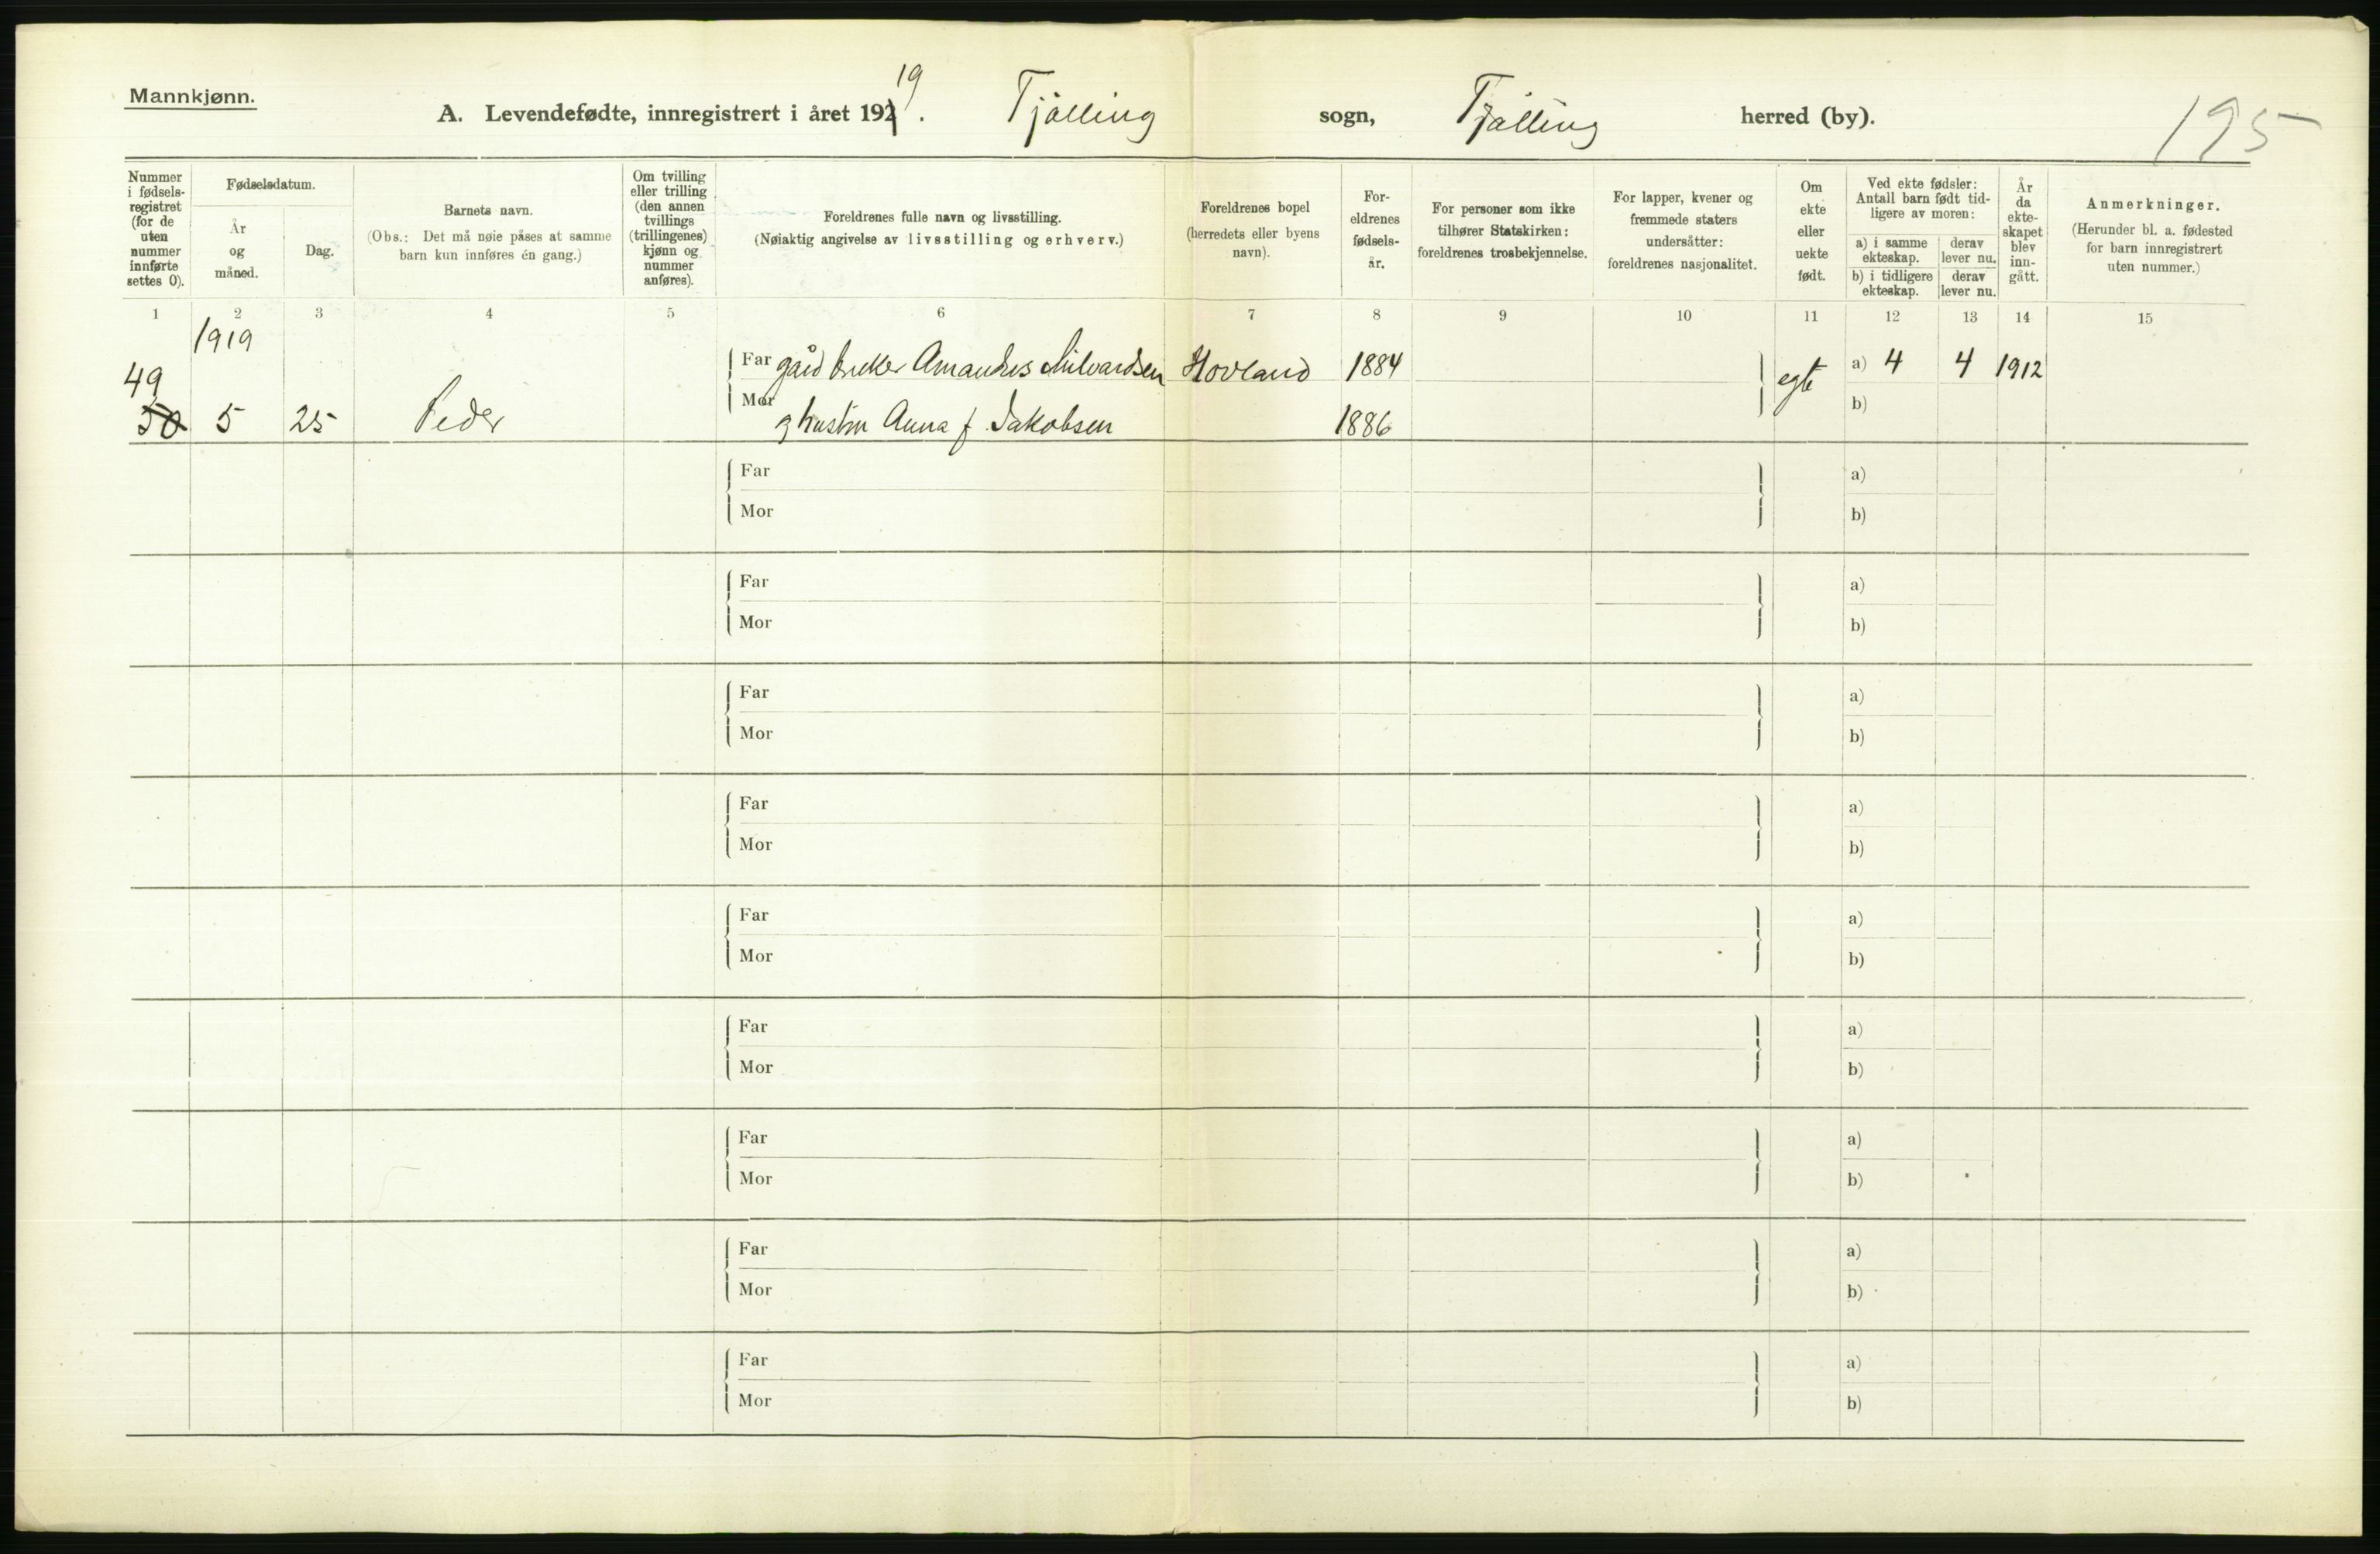 Mannkjønn.
A. Levendefødte, innregistrert i året 192 19. Tjølling sogn, Tjølling herred (by).
195
Nummer i fødsels-registret (for de uten nummer innførte settes 0).
Fødselsdatum.
År og måned.
Dag.
Barnets navn.
(Obs.: Det må nøie påses at samme barn kun innføres én gang.)
Om tvilling eller trilling (den annen tvillings (trillingenes) kjønn og nummer anføres).
Foreldrenes fulle navn og livsstilling.
(Nøiaktig angivelse av livsstilling og erhverv.)
Foreldrenes bopel (herredets eller byens navn).
For-eldrenes fødsels-år.
For personer som ikke tilhører Statskirken: foreldrenes trosbekjennelse.
For lapper, kvener og fremmede staters undersåtter: foreldrenes nasjonalitet.
Om ekte eller uekte født.
Ved ekte fødsler: Antall barn født tid-ligere av moren:
a) i samme ekteskap.
derav lever nu.
b) i tidligere ekteskap.
derav lever nu.
År da ekte-skapet blev inn-gått.
Anmerkninger.
(Herunder bl. a. fødested for barn innregistrert uten nummer.)
1 2 3 4 5 6 7 8 9 10 11 12 13 14 15
1919
49 Far gårdbruker Amandus Milvardsen Hovland 1884 egte a) 4 4 1912
50 5 25 Peder Mor g hustru Anna f. Jakobsen 1886 b)
Far a)
Mor b)
Far a)
Mor b)
Far a)
Mor b)
Far a)
Mor b)
Far a)
Mor b)
Far a)
Mor b)
Far a)
Mor b)
Far a)
Mor b)
Far a)
Mor b)